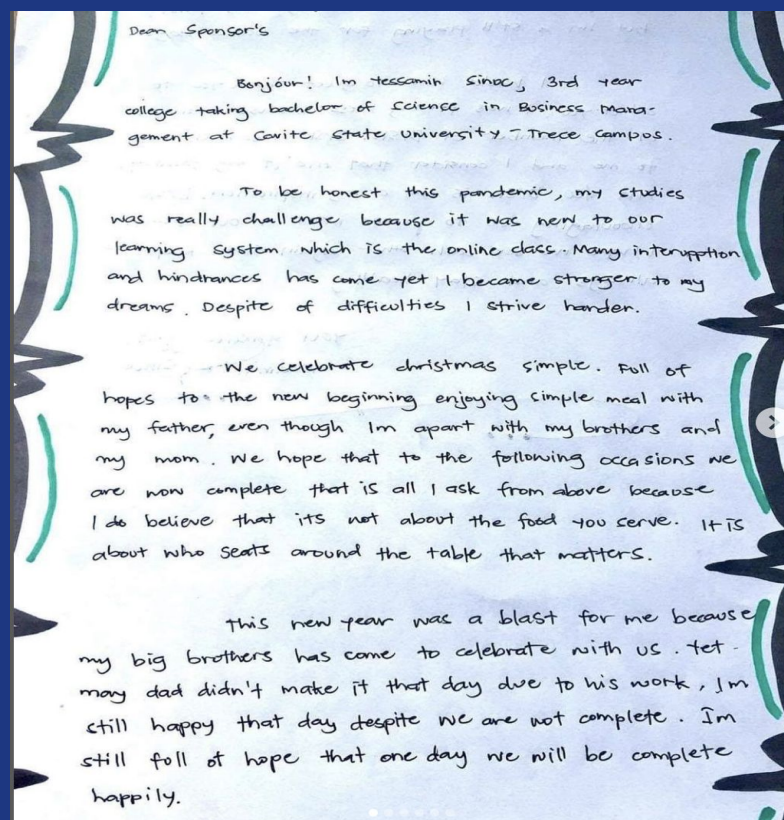 Dear Sponsor's
Bonjour! Im tessamin Sinoc, 3rd year
college taking bachelor of Science in Business Mana-
gement at Cavite State University - Trece Campus.
To be honest this pandemic, my studies
was really challenge because it was new to our
learning system which is the online class. Many interuption
and hindrances has come yet I became stronger to my
dreams. Despite of difficulties I strive harder.
We celebrate christmas simple. Full of
hopes to the new beginning enjoying simple meal with
my father, even though Im apart with my brothers and
my mom. We hope that to the following occasions we
are now complete that is all I ask from above because
I do believe that its not about the food you serve. It is
about who seats around the table that matters.
This new year was a blast for me because
my big brothers has come to celebrate with us. Yet
may dad didn't make it that day due to his work, Im
still happy that day despite we are not complete. Im
still foll of hope that one day we will be complete
happily.